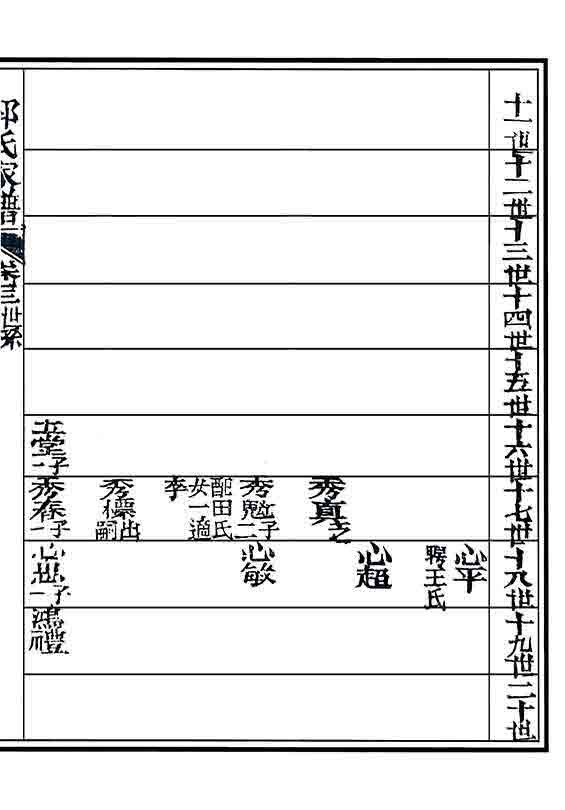 十一世
十二世
十三世
十四世
十五世
十六世
十七世
十八世
十九世
二十世
心平
聘王氏
心超
秀真之
秀
子二
配田氏
女一適
李
心敏
秀
出嗣
堂
一子
秀存
一子
心
一子
鴻禮
氏家譜
卷三世系